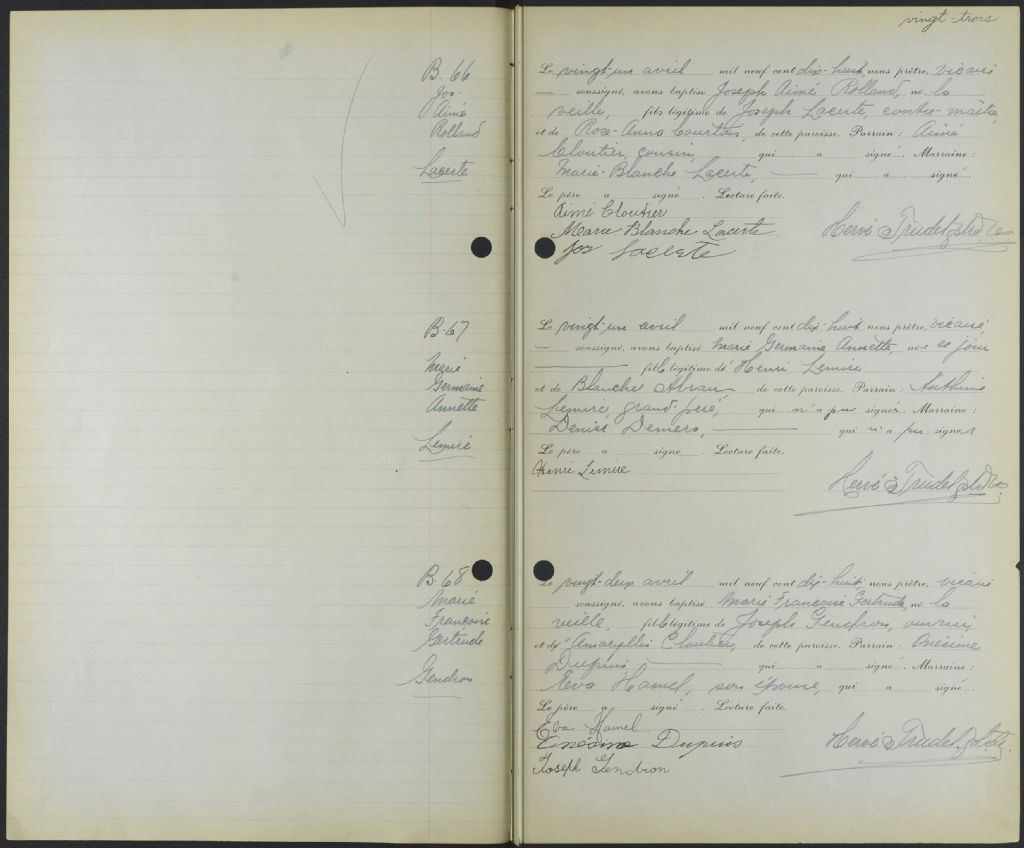 vingt-trois
B. 66
Jos.
Aimé
Rolland
Lacerte
Le vingt-un avril mil neuf cent dix-huit, nous prêtre, vicaire
soussigné, avons baptisé Joseph Aimé Rolland, né la
veille, fils légitime de Joseph Lacerte, contre-maître,
et de Rose-Anna Courtois, de cette paroisse. Parrain : Aimé
Cloutier, cousin, qui a signé. Marraine :
Marie-Blanche Lacerte, qui a signé.
Le père a signé. Lecture faite.
Aimé Cloutier
Marie Blanche Lacerte
Hervé Trudel ptre
Jos Lacerte
B-67
Marie
Germaine
Annette
Lemire
Le vingt-un avril mil neuf cent dix-huit nous prêtre, vicaire,
soussigné, avons baptisé Marie Germaine Annette, née ce jour
fille légitime de Henri Lemire
et de Blanche Abran de cette paroisse. Parrain :
Lemire, grand-père, qui n'a pu signer. Marraine :
Denise Demers, qui n'a pu signer
Le père a signé. Lecture faite.
Henri Lemire
Hervé Trudel ptre
B-68
Marie
Françoise
Gertrude
Gendron
Le vingt-deux avril mil neuf cent dix-huit, nous prêtre, vicaire
soussigné, avons baptisé Marie Françoise Gertrude, né la
veille, fille légitime de Joseph Gendron, ouvrier,
et d'Amaryllis Cloutier, de cette paroisse. Parrain : Onésime
Dupuis qui a signé. Marraine :
Eva Hamel, son épouse, qui a signé.
Le père a signé. Lecture faite.
Eva Hamel
Onésime Dupuis
Hervé Trudel ptre
Joseph Gendron